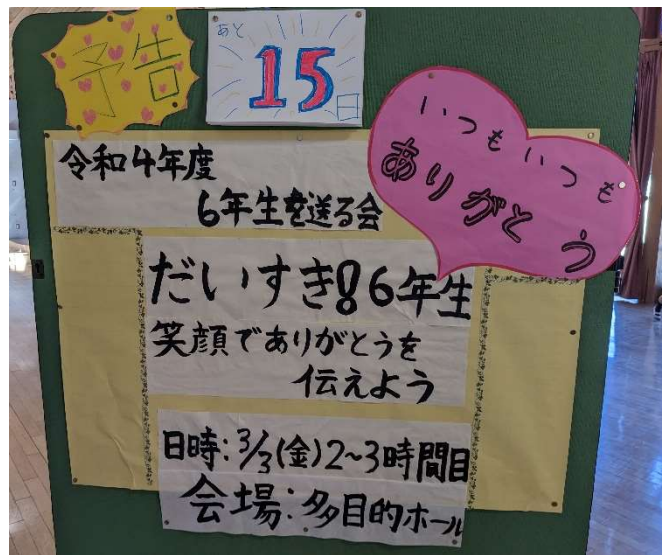 予告
あと
15日
いつもいつも
ありがとう
令和4年度
6年生を送る会
だいすき!!6年生
笑顔でありがとうを
伝えよう
日時:3/3(金)2~3時間目
会場:多目的ホール